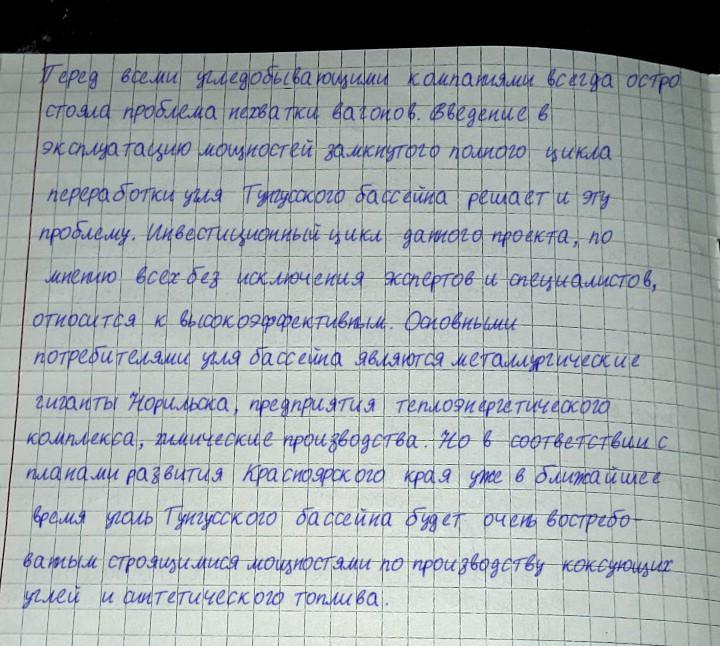 Перед всеми угледобывающими компаниями всегда остро
стояла проблема нехватки вагонов. Введение в
эксплуатацию мощностей замкнутого полного цикла
переработки угля Тунгусского бассейна решает и эту
проблему. Инвестиционный цикл данного проекта, по
мнению всех без исключения экспертов и специалистов,
относится к высокоэффективным. Основными
потребителями угля бассейна являются металлургические
гиганты Норильска, предприятия теплоэнергетического
комплекса, химические производства. Но в соответствии с
планами развития Красноярского края уже в ближайшее
время уголь Тунгусского бассейна будет очень востребо-
ватым строящимися мощностями по производству коксующих
углей и синтетического топлива.